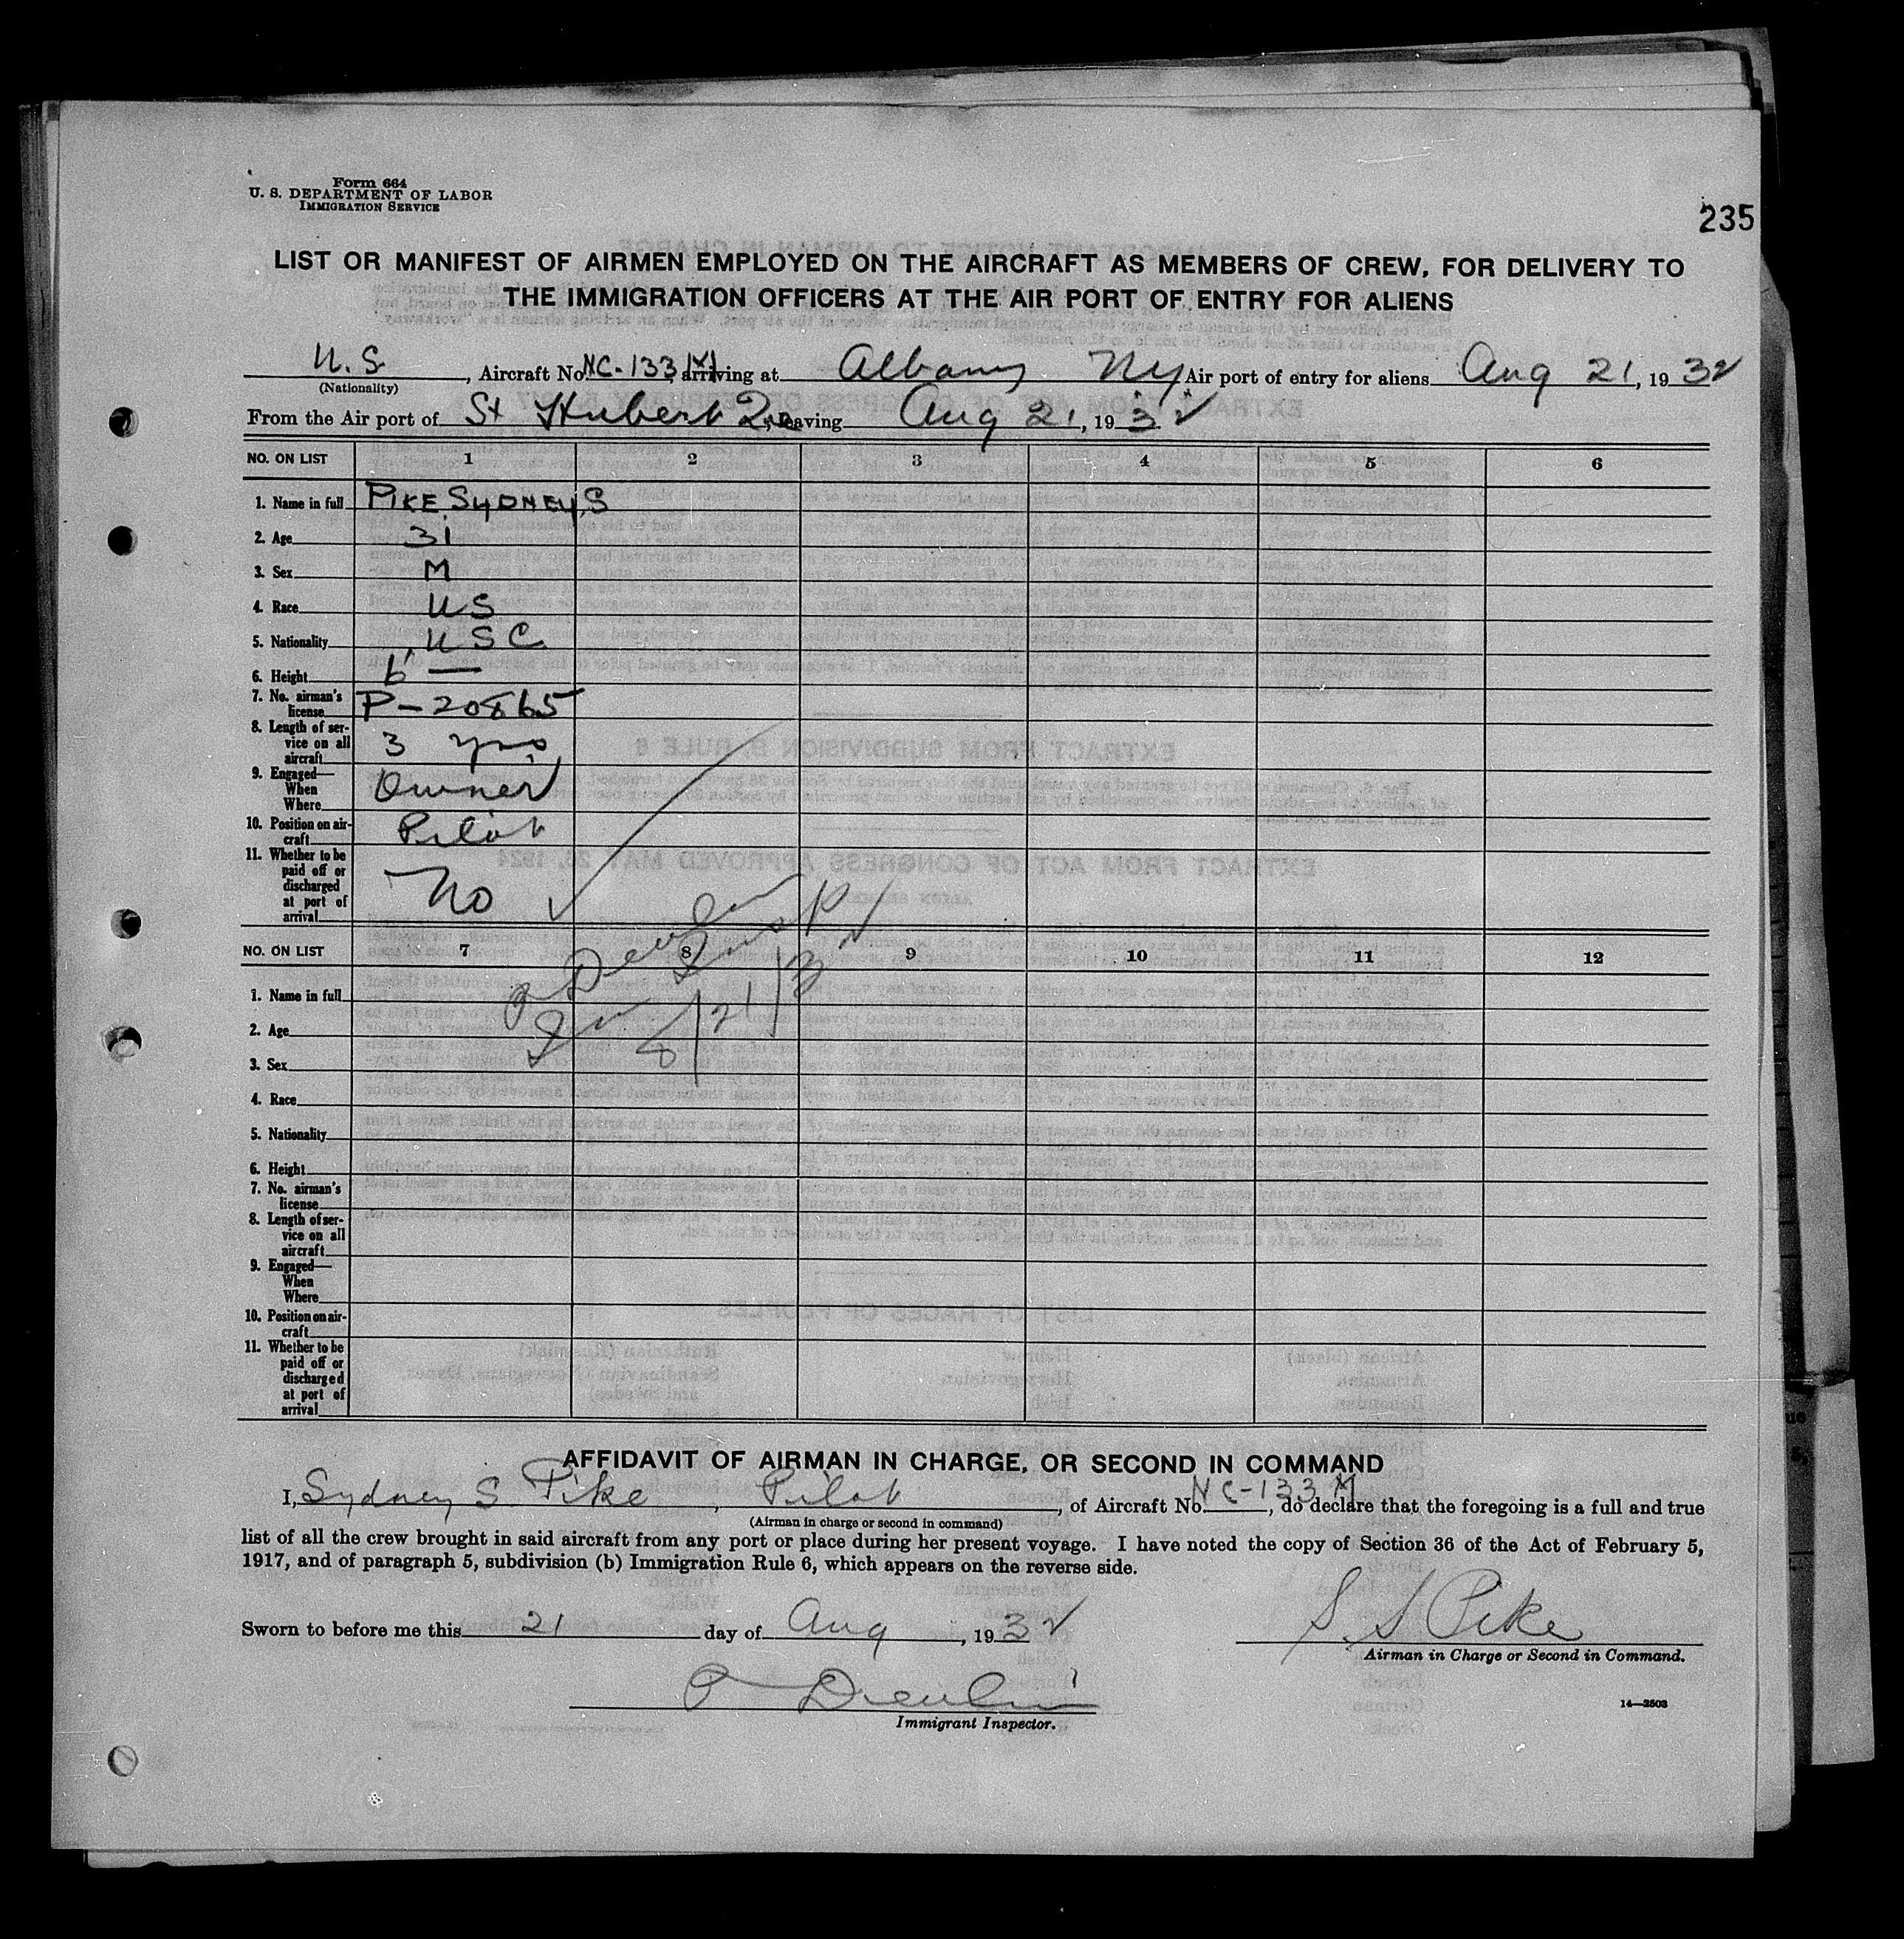 Form 664
U. S. DEPARTMENT OF LABOR
IMMIGRATION SERVICE
235
LIST OR MANIFEST OF AIRMEN EMPLOYED ON THE AIRCRAFT AS MEMBERS OF CREW, FOR DELIVERY TO
THE IMMIGRATION OFFICERS AT THE AIR PORT OF ENTRY FOR ALIENS
U.S. , Aircraft No. NC-133M arriving at Albany NY Air port of entry for aliens Aug 21, 1932
(Nationality)
From the Air port of St Hubert Que, leaving Aug 21, 1932
NO. ON LIST 1 2 3 4 5 6
1. Name in full PIKE, SYDNEY, S
2. Age 31
3. Sex M
4. Race US
5. Nationality USC
6. Height 6' —
7. No. airman's
license P-20865
8. Length of ser-
vice on all
aircraft 3 yrs
9. Engaged—
When
Where Owner
10. Position on air-
craft Pilot
11. Whether to be
paid off or
discharged
at port of
arrival No
NO. ON LIST 7 8 9 10 11 12
8/21/32
1. Name in full
2. Age
3. Sex
4. Race
5. Nationality
6. Height
7. No. airman's
license
8. Length of ser-
vice on all
aircraft
9. Engaged—
When
Where
10. Position on air-
craft
11. Whether to be
paid off or
discharged
at port of
arrival
AFFIDAVIT OF AIRMAN IN CHARGE, OR SECOND IN COMMAND
I, Sydney S. Pike, Pilot, of Aircraft No. NC-133M, do declare that the foregoing is a full and true
(Airman in charge or second in command)
list of all the crew brought in said aircraft from any port or place during her present voyage. I have noted the copy of Section 36 of the Act of February 5,
1917, and of paragraph 5, subdivision (b) Immigration Rule 6, which appears on the reverse side.
Sworn to before me this 21 day of Aug, 1932
S. S Pike
Airman in Charge or Second in Command.
Immigrant Inspector.
14—2503